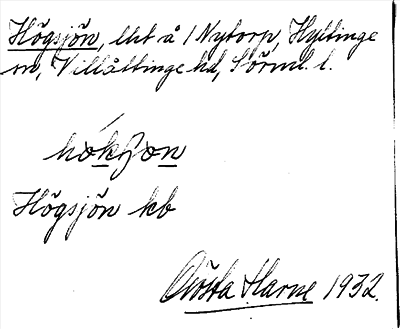 Högsjön, lht å 1 Nytorp, Hyltinge
sn, Villåttinge hd, Sörml. l.
hókʒon
Högsjön kb
Gösta Harne 1932.